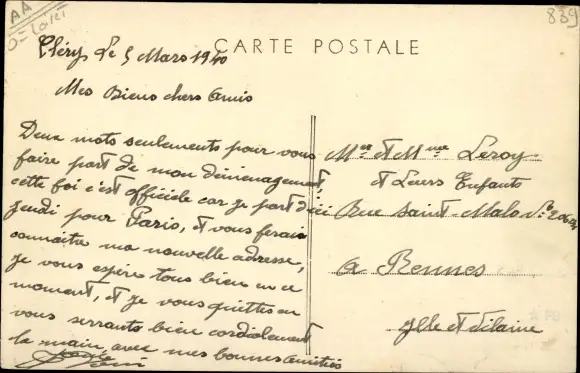 AA
839
CARTE POSTALE
Cléry Le 5 Mars 1940
Mes Biens chers Amis
Deux mots seulements pour vous
faire part de mon déménagement,
cette foi c'est officiele car je part d'ici
jeudi pour Paris, et vous ferais
connaitre ma nouvelle adresse,
je vous espère tous bien en ce
moment, et je vous quittes en
vous serrants bien cordialement
la main, avec mes bonnes amitiés
Mer et Mme Leroy
et Leurs Enfants
Rue Saint-Malo No
a Rennes
Ille et Vilaine